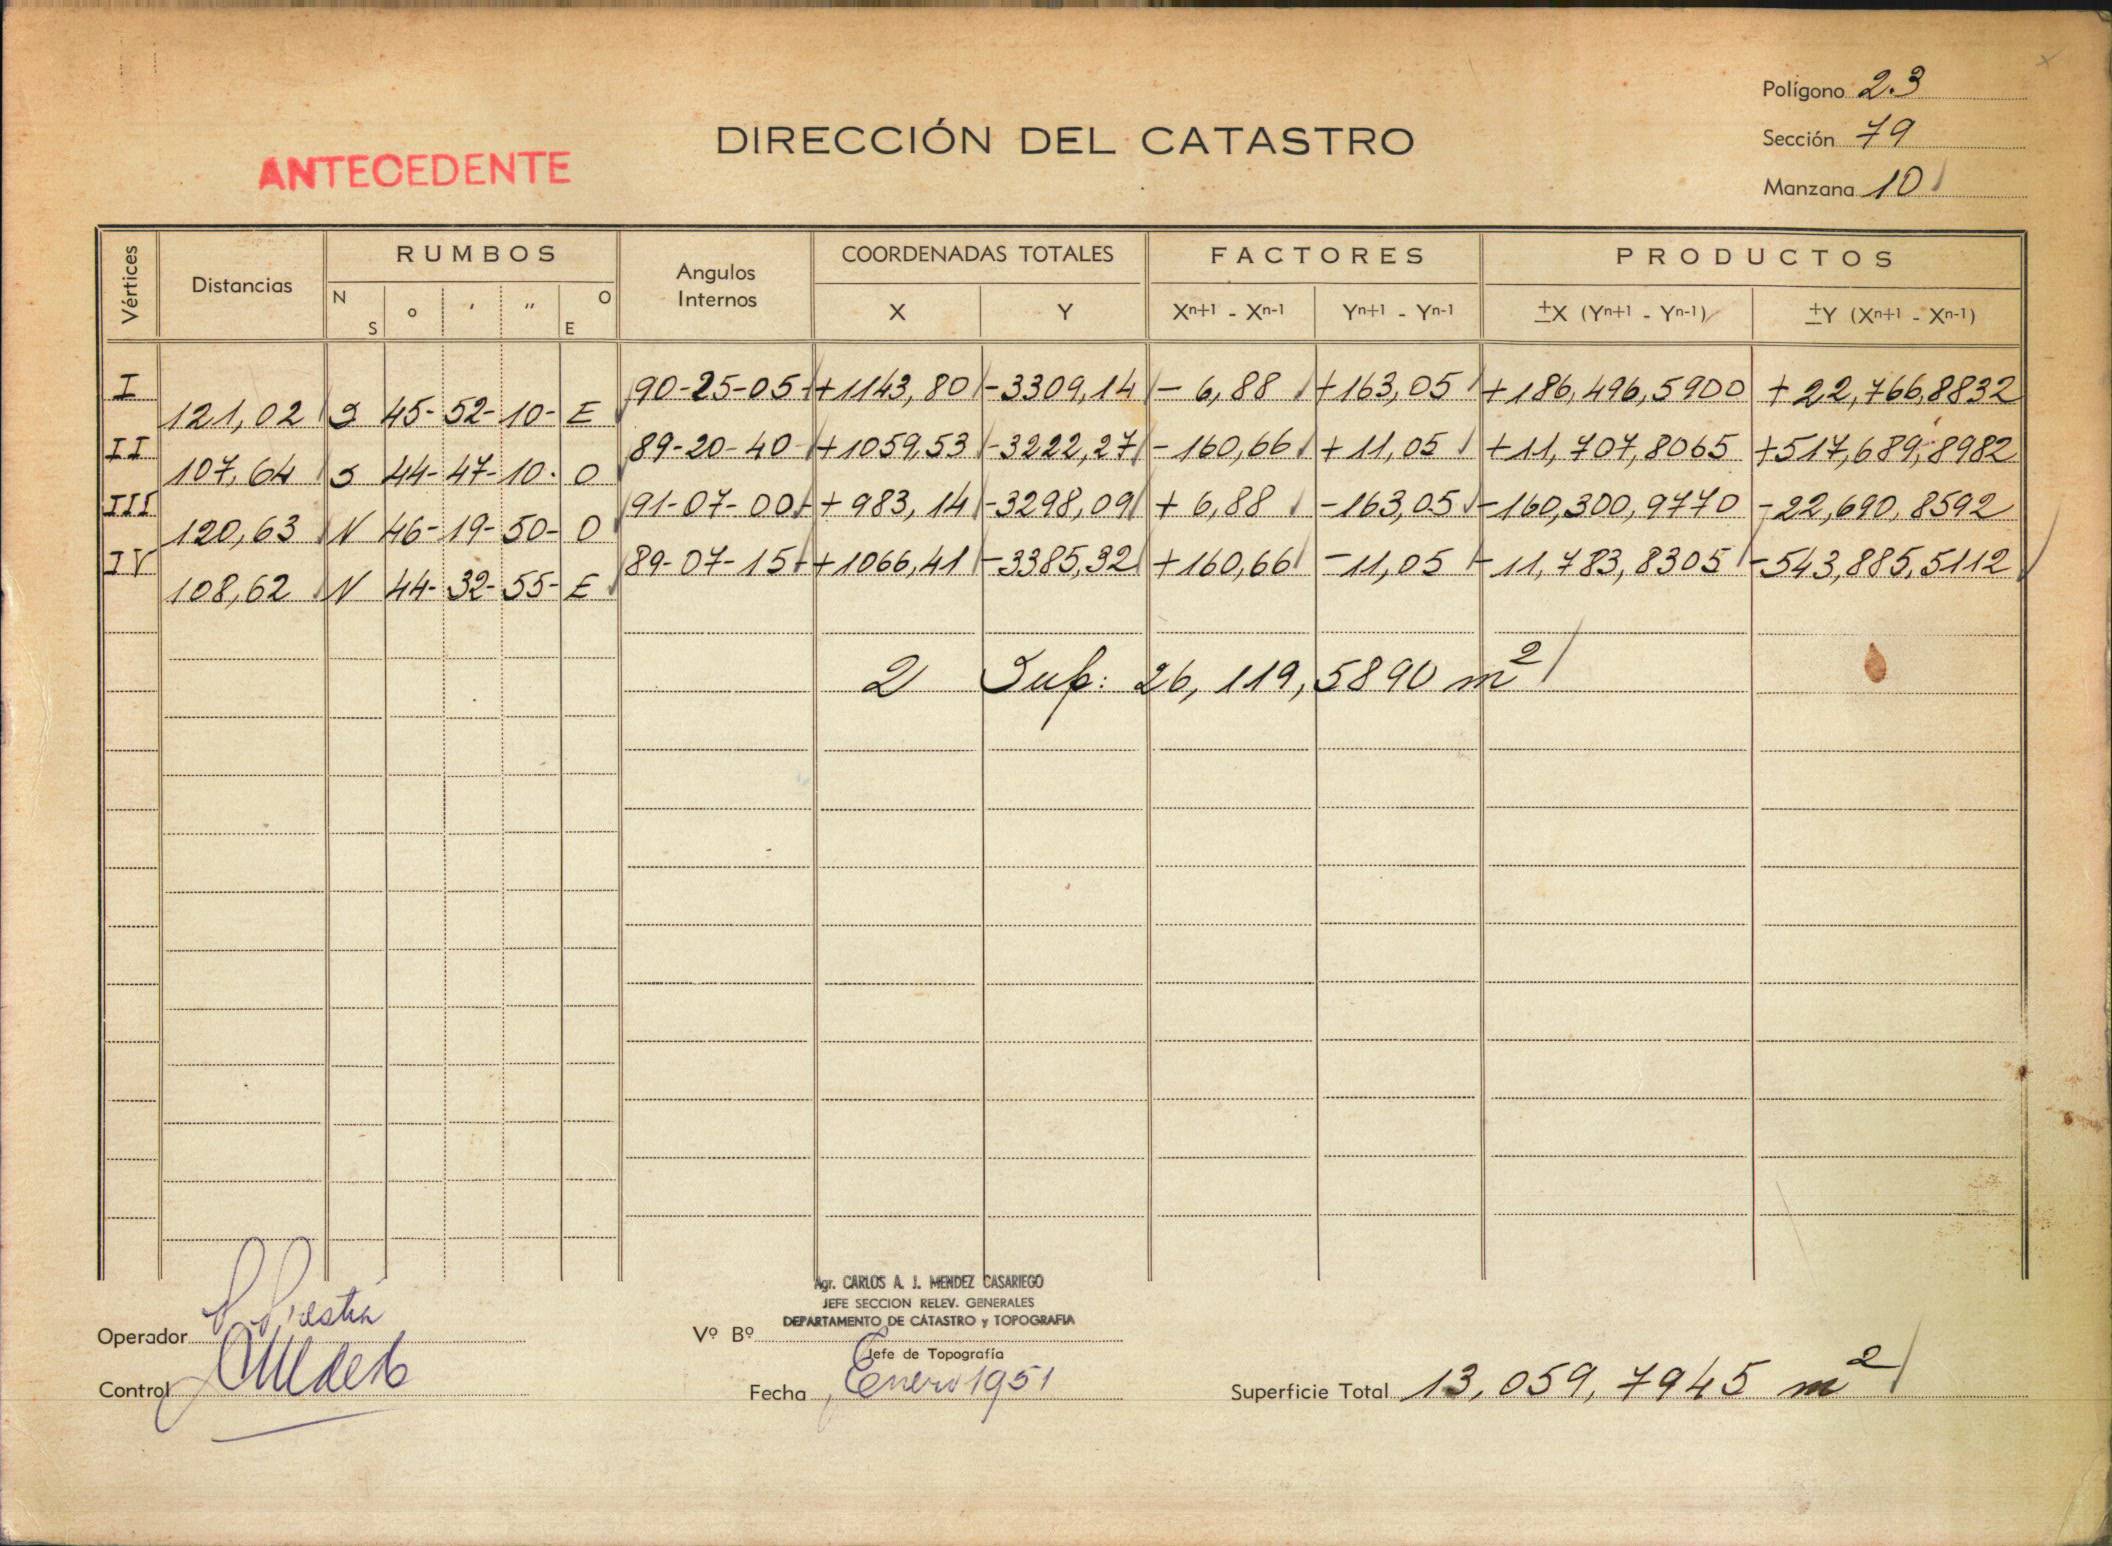 Polígono 23
Sección 79
Manzana 10
DIRECCIÓN DEL CATASTRO
ANTECEDENTE
Vértices Distancias RUMBOS Angulos Internos COORDENADAS TOTALES FACTORES PRODUCTOS
N S o ' " O E X Y Xn+1 - Xn-1 Yn+1 - Yn-1 ±X (Yn+1 - Yn-1) ±Y (Xn+1 - Xn-1)
I 90-25-05 +1143,80 -3309,14 - 6,88 +163,05 +186,496,5900 +22,766,8832
121,02 S 45- 52- 10- E
II 89-20-40 +1059,53 -3222,27 -160,66 +11,05 +11,707,8065 +517,689,8982
107,64 S 44- 47- 10- O
III 91-07-00 + 983,14 -3298,09 + 6,88 -163,05 -160,300,9770 -22,690,8592
120,63 N 46- 19- 50- O
IV 89-07-15 +1066,41 -3385,32 +160,66 -11,05 -11,783,8305 -543,885,5112
108,62 N 44- 32- 55- E
2 Sup: 26,119,5890 m2
Agr. CARLOS A. J. MENDEZ CASARIEGO
JEFE SECCION RELEV. GENERALES
DEPARTAMENTO DE CATASTRO y TOPOGRAFIA
Operador
Vº Bº
Jefe de Topografía
Control
Fecha Enero 1951
Superficie Total 13,059,7945 m2